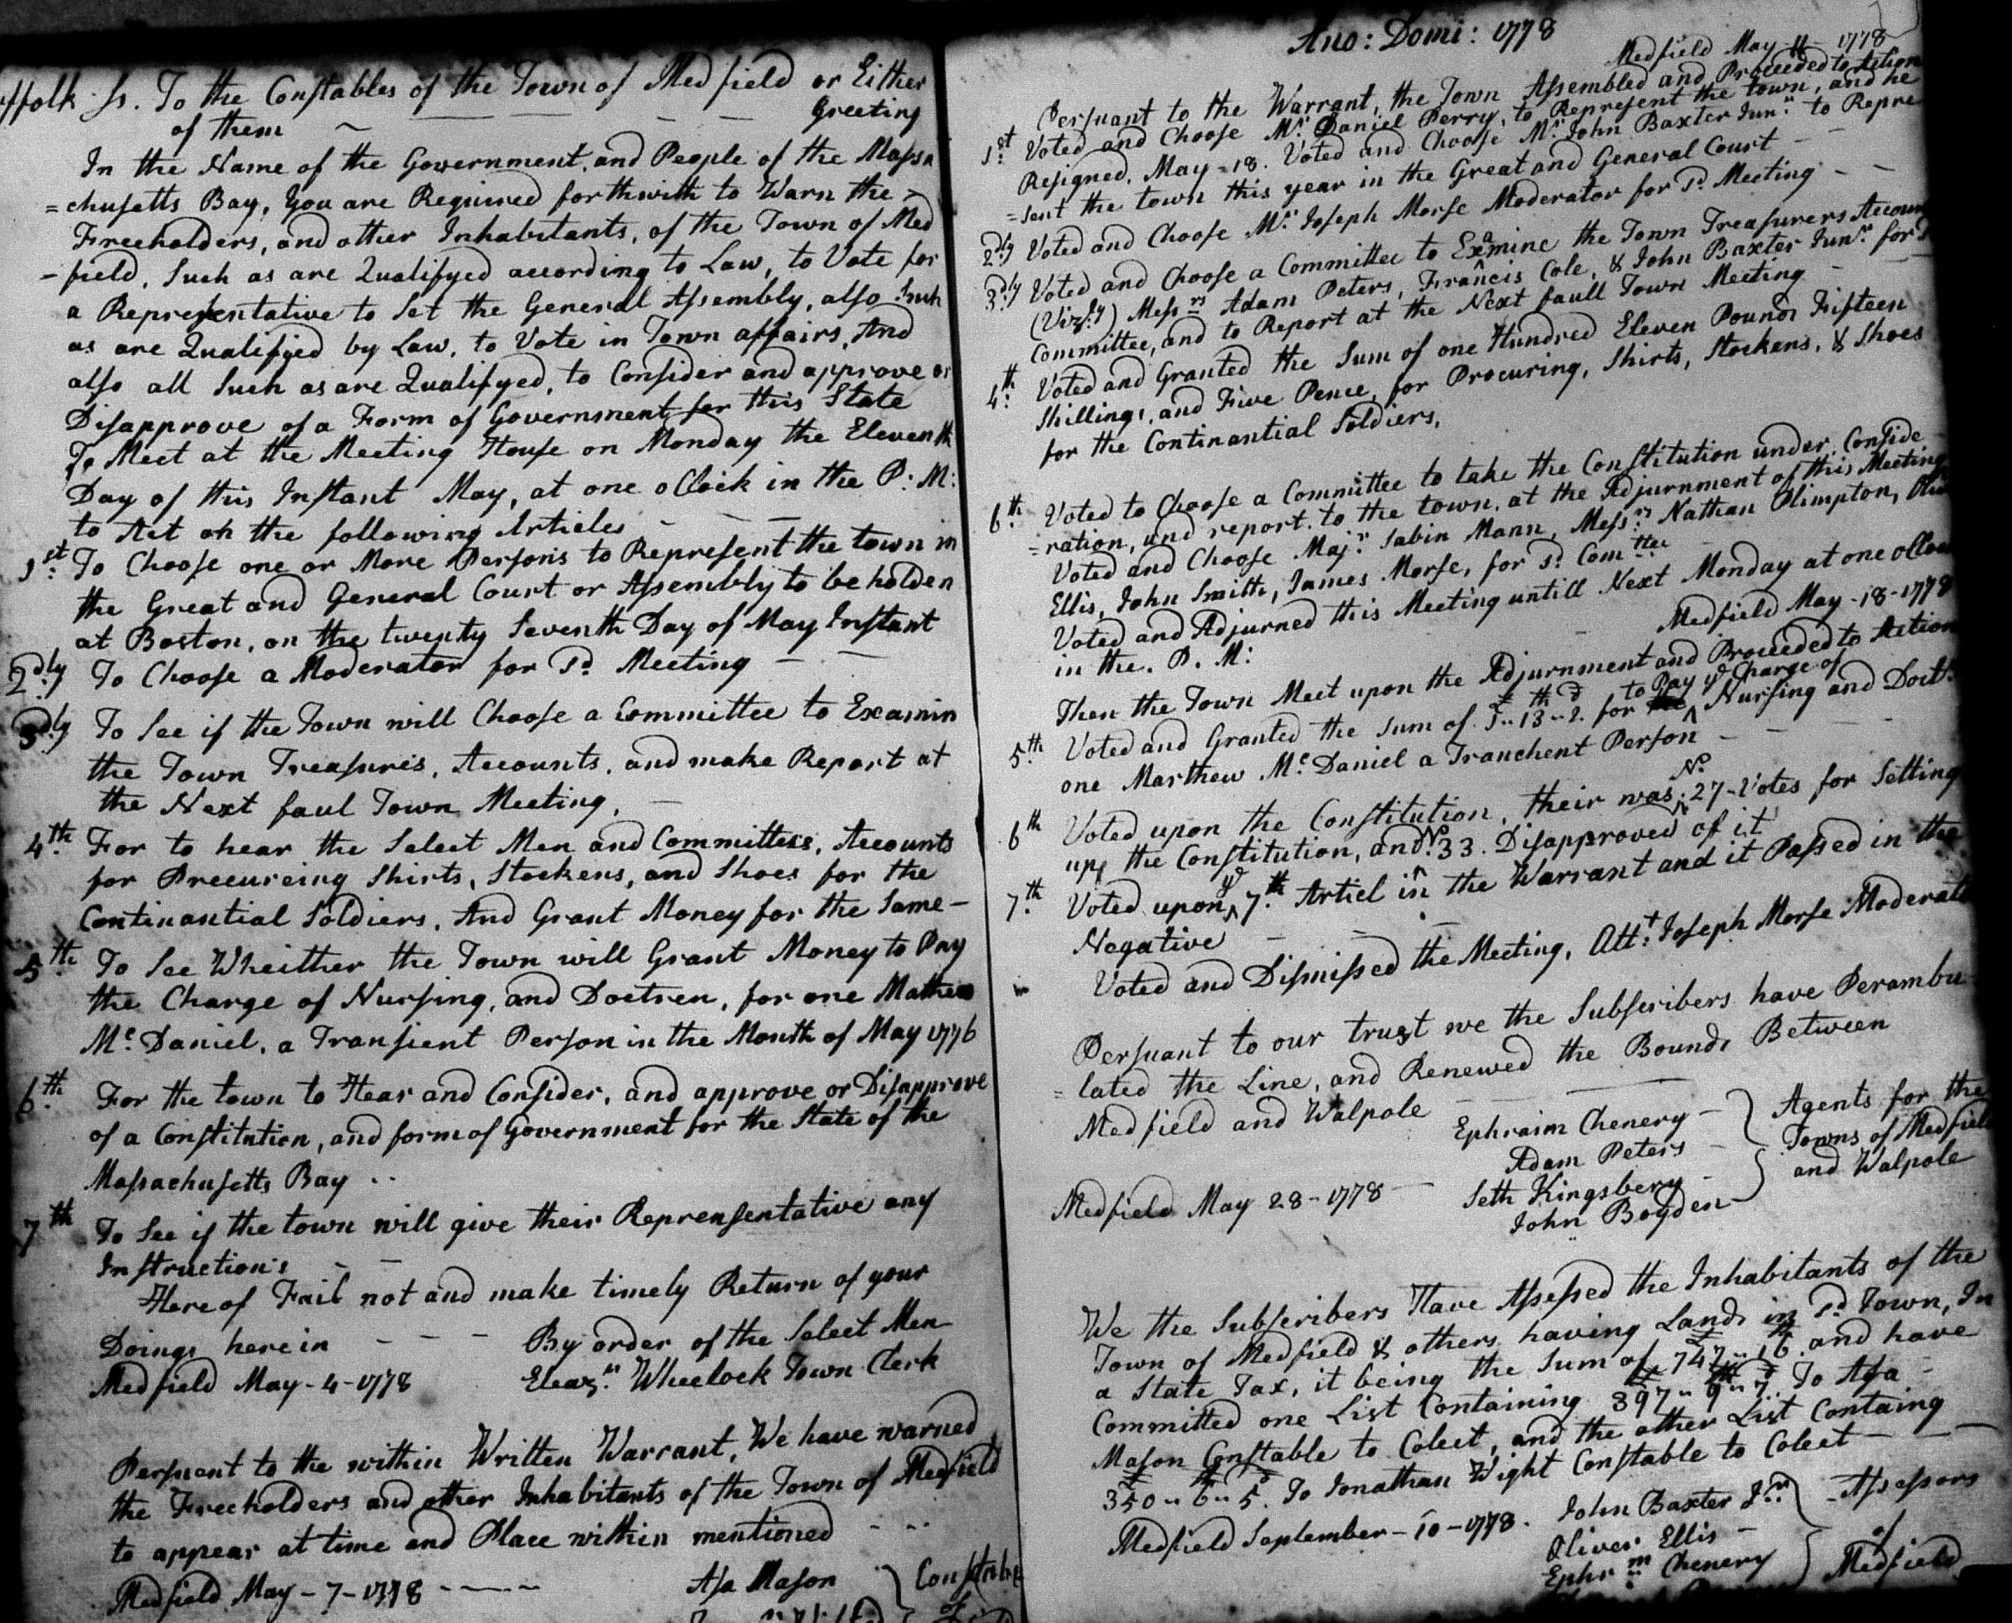 ffolk ss. To the Constables of the Town of Medfield or Either
of them — — — — — Greeting
In the Name of the Government, and People of the Massa
=chusetts Bay, You are Required forthwith to Warn the
Freeholders, and other Inhabitants, of the Town of Med
-field, Such as are Qualifyed according to Law, to Vote for
a Representative to Set the General Assembly, also Such
as are Qualifyed by Law, to Vote in Town affairs, And
also all Such as are Qualifyed, to Consider and approve or
Disapprove of a Form of Government for this State
To Meet at the Meeting House on Monday the Eleventh
Day of this Instant May, at one oClock in the P: M:
to Act on the following Articles — — —
1st. To Choose one or More Persons to Represent the town in
the Great and General Court or Assembly to be holden
at Boston, on the twenty Seventh Day of May Instant
2dly To Choose a Moderator for Sd. Meeting — —
3dly To See if the Town will Choose a Committee to Examin
the Town Treasures, Accounts, and make Report at
the Next faul Town Meeting, —
4th. For to hear the Select Men and Committees, Accounts
for Precureing Shirts, Stockens, and Shoes for the
Continantial Soldiers, And Grant Money for the Same —
5th. To See Wheither the Town will Grant Money to Pay
the Charge of Nursing, and Doctren, for one Mathew
Mc. Daniel, a Transient Person in the Month of May 1776
6th. For the town to Hear and Consider, and approve or Disapprove
of a Constitution, and form of Government for the State of the
Massachusetts Bay ..
7th To See if the town will give their Reprensentative any
Instructions — —
Here of Fail not and make timely Return of your
Doings here in — — — By order of the Select Men
Medfield May - 4 - 1778 Eleazr. Wheelock Town Clerk
Persuant to the within Written Warrant, We have warned
the Freeholders and other Inhabitants of the Town of Medfield
to appear at time and Place within mentioned — ..
Medfield May - 7 - 1778 - — — Asa Mason } Constabe
of
Ano: Domi: 1778
Medfield May - 11 - 1778
Persuant to the Warrant, the Town Assembled and Proceeded to Action
1st. Voted and Choose Mr. Daniel Perry, to Represent the town, and he
Resigned, May - 18. Voted and Choose Mr. John Baxter Junr. to Repre
=sent the town this year in the Great and General Court —
2dly Voted and Choose Mr. Joseph Morse Moderator for Sd. Meeting — —
3dly Voted and Choose a Committee to Examine the Town Treasurers Accoun
(Vizly) Messrs Adam Peters, Francis Cole, & John Baxter Junr. for S
Committee, and to Report at the Next faull Town Meeting —
4th. Voted and Granted the Sum of one Hundred Eleven Pounds Fifteen
Shillings, and Five Pence, for Procuring, Shirts, Stockens, & Shoes
for the Continantial Soldiers,
6th. Voted to Choose a Committee to take the Constitution under, Conside
=ration, and report to the town, at the Adjurnment of this Meeting
Voted and Choose Majr. Sabin Mann, Messrs. Nathan Plimpton, Oliv
Ellis, John Smith, James Morse, for Sd. Comttee —
Voted and Adjurned this Meeting untill Next Monday at one oCloc
in the. P. M: — Medfield May - 18 - 1778
Then the Town Meet upon the Adjurnment and Proceeded to Action
5th Voted and Granted the Sum of £5 " 13th " 2d for to Pay ye Charge of Nursing and Doct
one Marthew Mc. Daniel a Tranchent Person — — —
6th Voted upon the Constitution, their was: No 27 - Votes for Setting
up the Constitution, and No. 33. Disapproved of it
7th. Voted upon ye 7th. Articl in the Warrant and it Passed in the
Negative — — —
Voted and Dismissed the Meeting, Attt. Joseph Morse Moderat
Persuant to our trust we the Subscribers have Perambu
=lated the Line, and Renewed the Bounds Between
Medfield and Walpole — — — —
Ephraim Chenery — } Agents for the
Adam Peters — Towns of Medfiel
Medfield May 28 - 1778 — Seth Kingsbery — and Walpole
John Boyden
We the Subscribers Have Assessed the Inhabitants of the
Town of Medfield & others having Lands in sd Town, In
a State Tax, it being the Sum of £747 " 16th and have
Committed one List Containing £397 " 9th " 7d. To Asa —
Mason Constable to Colect, and the other List Containg
£350 " 6th " 5d. To Jonathan Wight Constable to Colect — — —
Medfield September - 10 - 1778. John Baxter Jnr } - Assessors
Oliver Ellis — of
Ephrm. Chenery } Medfield